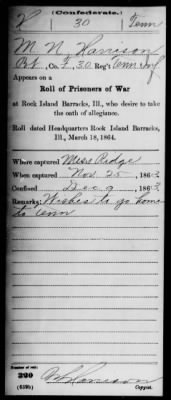 (Confederate.)
H 30 Tenn
M. N. Harrison
Pvt, Co. F, 30 Reg't Tenn Inf
Appears on a
Roll of Prisoners of War
at Rock Island Barracks, Ill., who desire to take
the oath of allegiance.
Roll dated Headquarters Rock Island Barracks,
Ill., March 18, 1864.
Where captured Miss Ridge
When captured Nov 25, 1863
Confined Dec 9, 1863
Remarks: Wishes to go home
to Tenn
Number of roll:
320
(639b) Copyist.